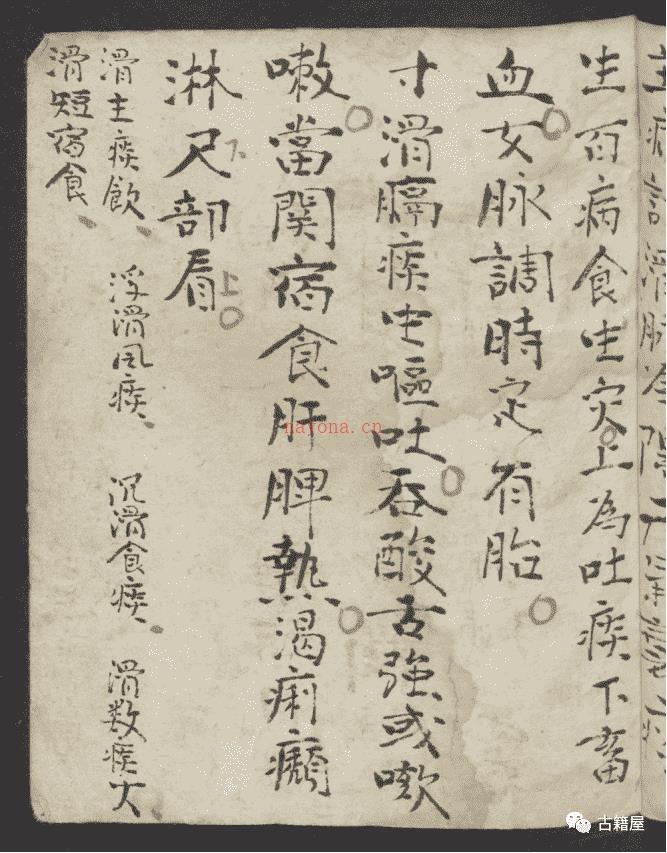 主病詩滑脉
生百病食生灾上為吐痰下畜
血女脉調時定有胎
寸滑膈痰生嘔吐吞酸舌強或咳
嗽當関宿食肝脾熱渴痢癲
淋尺部看
下
上
滑主痰飲 浮滑風痰 沉滑食痰 滑数痰火
滑短宿食
nayona.cn
古籍屋